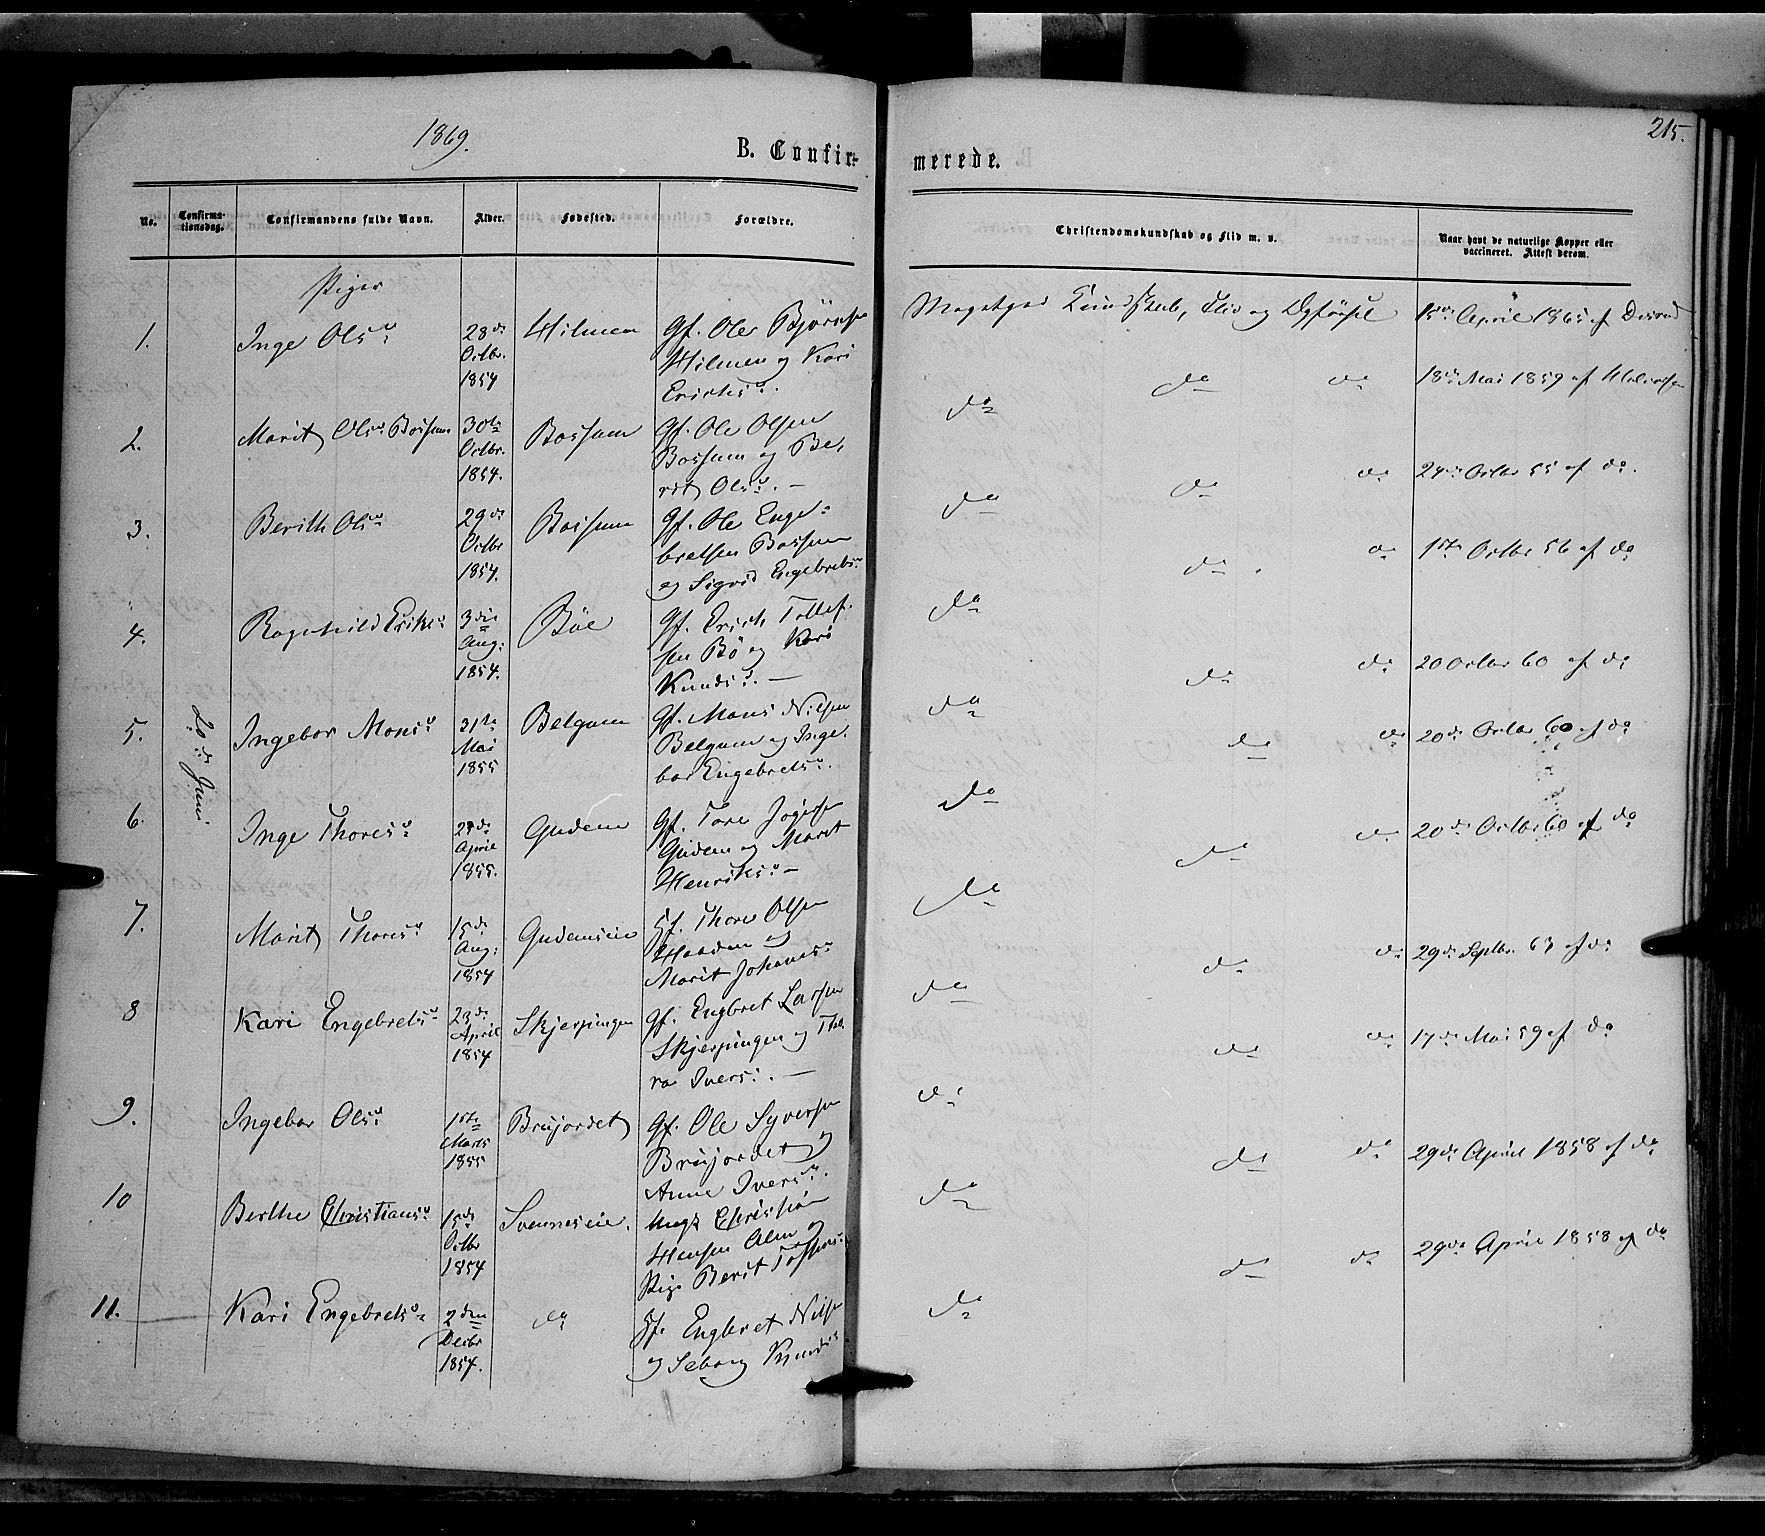 1869.
B. Confir-
merede.
215.
No.
Confirma-
tionsdag.
Confirmandens fulde Navn.
Alder.
Fødested.
Forældre.
Christendomskundskab og Flid m. v.
Naar havt de naturlige Kopper eller
vaccineret. Attest derom.
Piger
20de Juni
1.
Inge Olsd.
28de
Octbr.
1854
Hilmen
Gf. Ole
Hilmen og Kari
Ericksd.
Kundskab, Flid og
April 1865 af
2.
Marit Olsd. Bossum
30te
Octbr.
1854.
Bossum
Gf. Ole Olsen
Bossum og Be-
rit Olsd. —
do do do
18de Mai 1859 af
3.
Berith Olsd.
29de
Octbr
1854.
Bossum
Gf. Ole Enge-
bretsen Bossum
og Sigrid Engebretsd.
do do do
24de Octbr 55 af do.
4.
Ragnhild Eriksd.
3die
Aug:
1854.
Böe
Gf. Erich Tollef-
sen Bö og Kari
Knudsd. —
do do do
1ste Octbr 56 af do
5.
Ingebor Monsd.
31te
Mai
1855
Belgum
Gf. Mons Nilsen
Belgum og Inge-
bor Engebretsd.
do do do
20 Octbr 60 af do
6.
Inge Thoresd.
April
1855.
Gudem
Gf. Tore
Gudem og Marit
Henriksd. —
do do do
20de Octbr 60 af do
7.
Marit Thoresd.
15de
Aug:
1854
Gf. Thore Olsen
og
Marit Johanesd.
do do do
20de Octbr 60 af do
8
Kari Engebretsd.
23de
April
1854
Skjerpingen
Gf. Engbret Larsen
Skjerpingen og Tho-
ra Iversd. —
do do do
29de Septbr. 63 af do
9.
Ingebor Olsd.
1ste
Marts
1855
Brujordet
Gf. Ole Syversen
Brujordet og
Anne Iversd.
do do do
17de Mai 59 af do
10
Berthe Christiansd.
15de
Octbr
1854
Svenneseie.
Ungk Christian
Hansen Alm og
Pige Berit
do do do
29de April 1858 af do
11.
Kari Engebretsd.
2den
Decbr
1854.
do
Gf. Engbret Nilsen
og Seborg Knudsd.
do do do
29de April 1858 af do